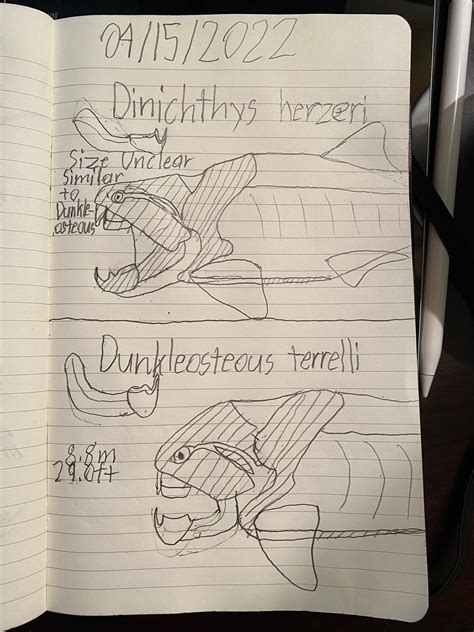 04/15/2022
Dinichthys herzeri
Size Unclear
Similar
to
Dunkle-
osteous
Dunkleosteous terrelli
8.8m
29.0ft